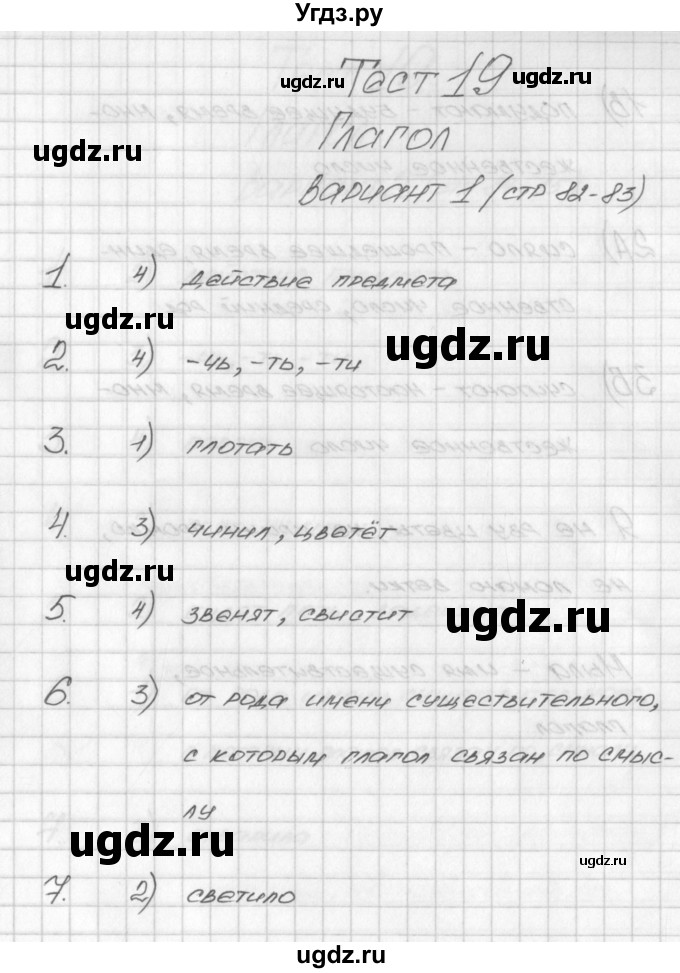 Угдз.ру
Тест 19
Глагол
вариант 1 (стр 82-83)
1. 4) действие предмета
2. 4) -чь, -ть, -ти
3. 1) глотать
4. 3) чинил, цветёт
5. 4) звенят, свистит
6. 3) от рода имени существительного,
с которым глагол связан по смыс-
лу
7. 2) светило
ugdz.ru
ugdz.ru
ugdz.ru
ugdz.ru
ugdz.ru
ugdz.ru
ugdz.ru
ugdz.ru
ugdz.ru
ugdz.ru
ugdz.ru